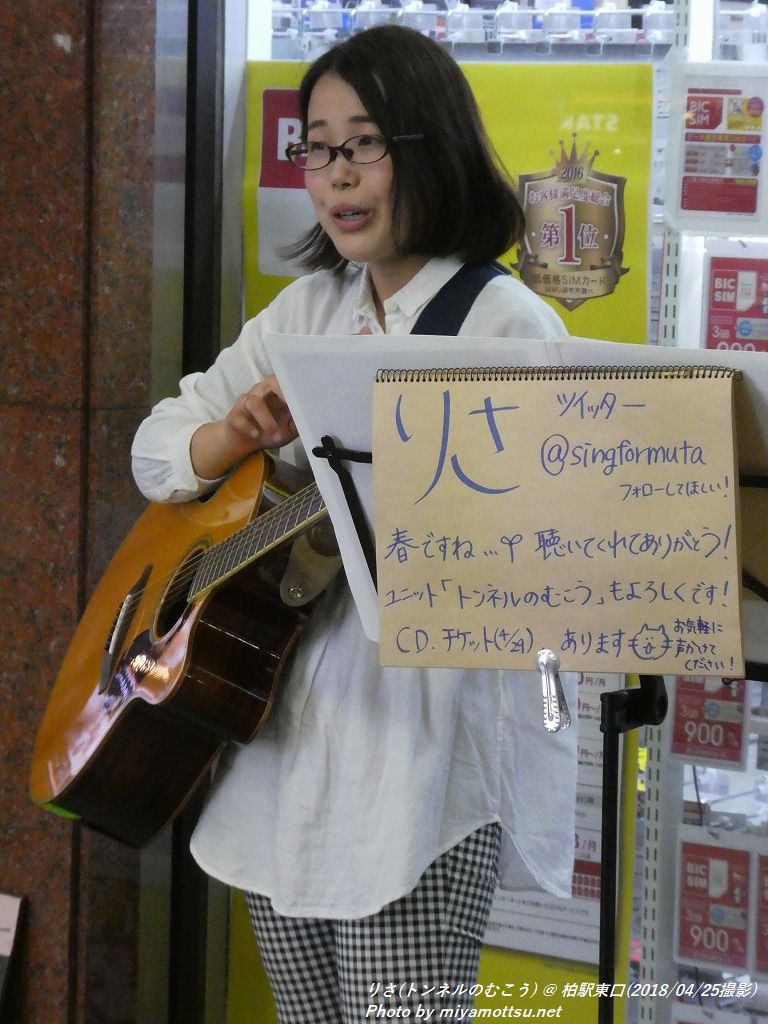 STAR
B
2016
お客様満足度総合
第1位
低価格SIMカード
BIC
SIM
BIC
SIM
3GB
900
りさ
ツイッター
@singformuta
フォローしてほしい!
春ですね… 聴いてくれてありがとう!
ユニット「トンネルのむこう」もよろしくです!
CD.チケット(4/29) あります
お気軽に
声かけて
ください!
3GB
900
BIC
SIM
3GB
900
りさ(トンネルのむこう) @ 柏駅東口(2018/04/25撮影)
Photo by miyamottsu.net